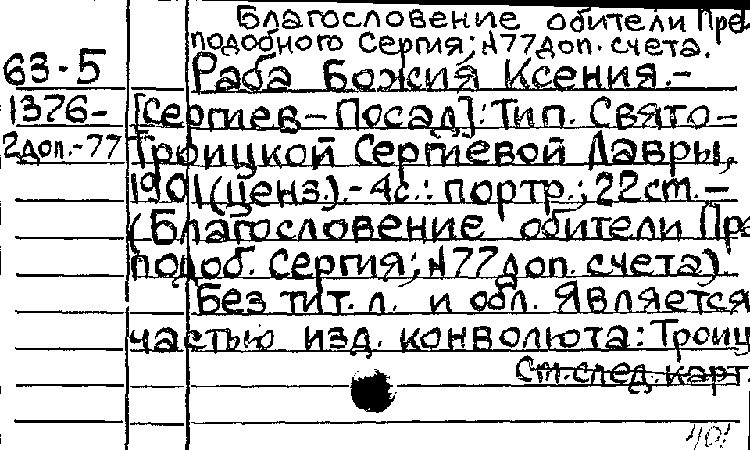 Благословение обители Пре
подобного Сергия; №77 доп. счета.
63-5 Раба Божия Ксения.-
1376- [Сергиев-Посад]: Тип. Свято-
2доп.-77 Троицкой Сергиевой Лавры,
1901 (ценз.).- 4с.: портр.; 22см.-
(Благословение обители Пре
подоб. Сергия; №77 доп. счета)
Без тит. л. и обл. Является
частью изд. конволюта: Троиц
См. след. карт.
401